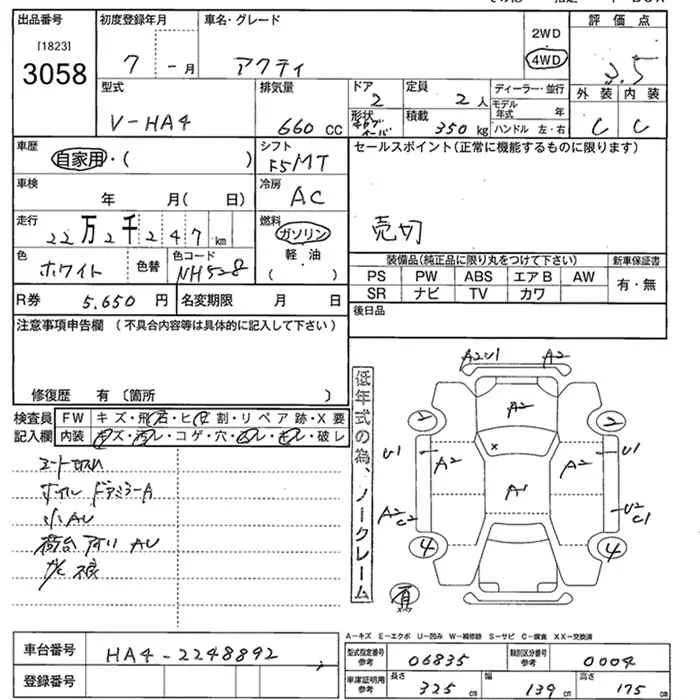 出品番号 初度登録年月 車名・グレード 2WD 評価点
[1823]
3058 7 -月 アクティ 4WD 3.5
型式 排気量 ドア 定員 ディーラー・並行 外装 内装
V-HA4 660 CC 2 2人 モデル年式 年 C C
形状 積載 350kg ハンドル 左・右
車歴 シフト セールスポイント(正常に機能するものに限ります)
自家用・( ) F5MT
車検 冷房
年 月( 日) AC
走行 燃料
22万2千247km ガソリン 売切
軽油
( )
色 色替 色コード 装備品(純正品に限り丸をつけて下さい) 新車保証書
ホワイト NH528 PS PW ABS エアB AW 有・無
R券 5.650円 名変期限 月 日 SR ナビ TV カワ
注意事項申告欄 (不具合内容等は具体的に記入して下さい) 後日品
修復歴 有〔箇所 〕
検査員 FW キズ・飛石・ヒビ割・リペア跡・X要
記入欄 内装 キズ・汚レ・コゲ・穴・ムレ・キレ・破レ
小AU
荷台 AU
低年式の為、ノークレーム
A2U1 A2
A2
2 2
U1 A2 x A2 U1
A1
A2 C2 U2 C1
4 4
A-キズ E-エクボ U-凹み W-補修跡 S-サビ C-腐食 XX-交換済
車台番号 HA4-2248892
型式指定番号参考 06835 類別区分番号参考 0004
登録番号 車庫証明用参考 長さ 325cm 幅 139cm 高さ 175cm